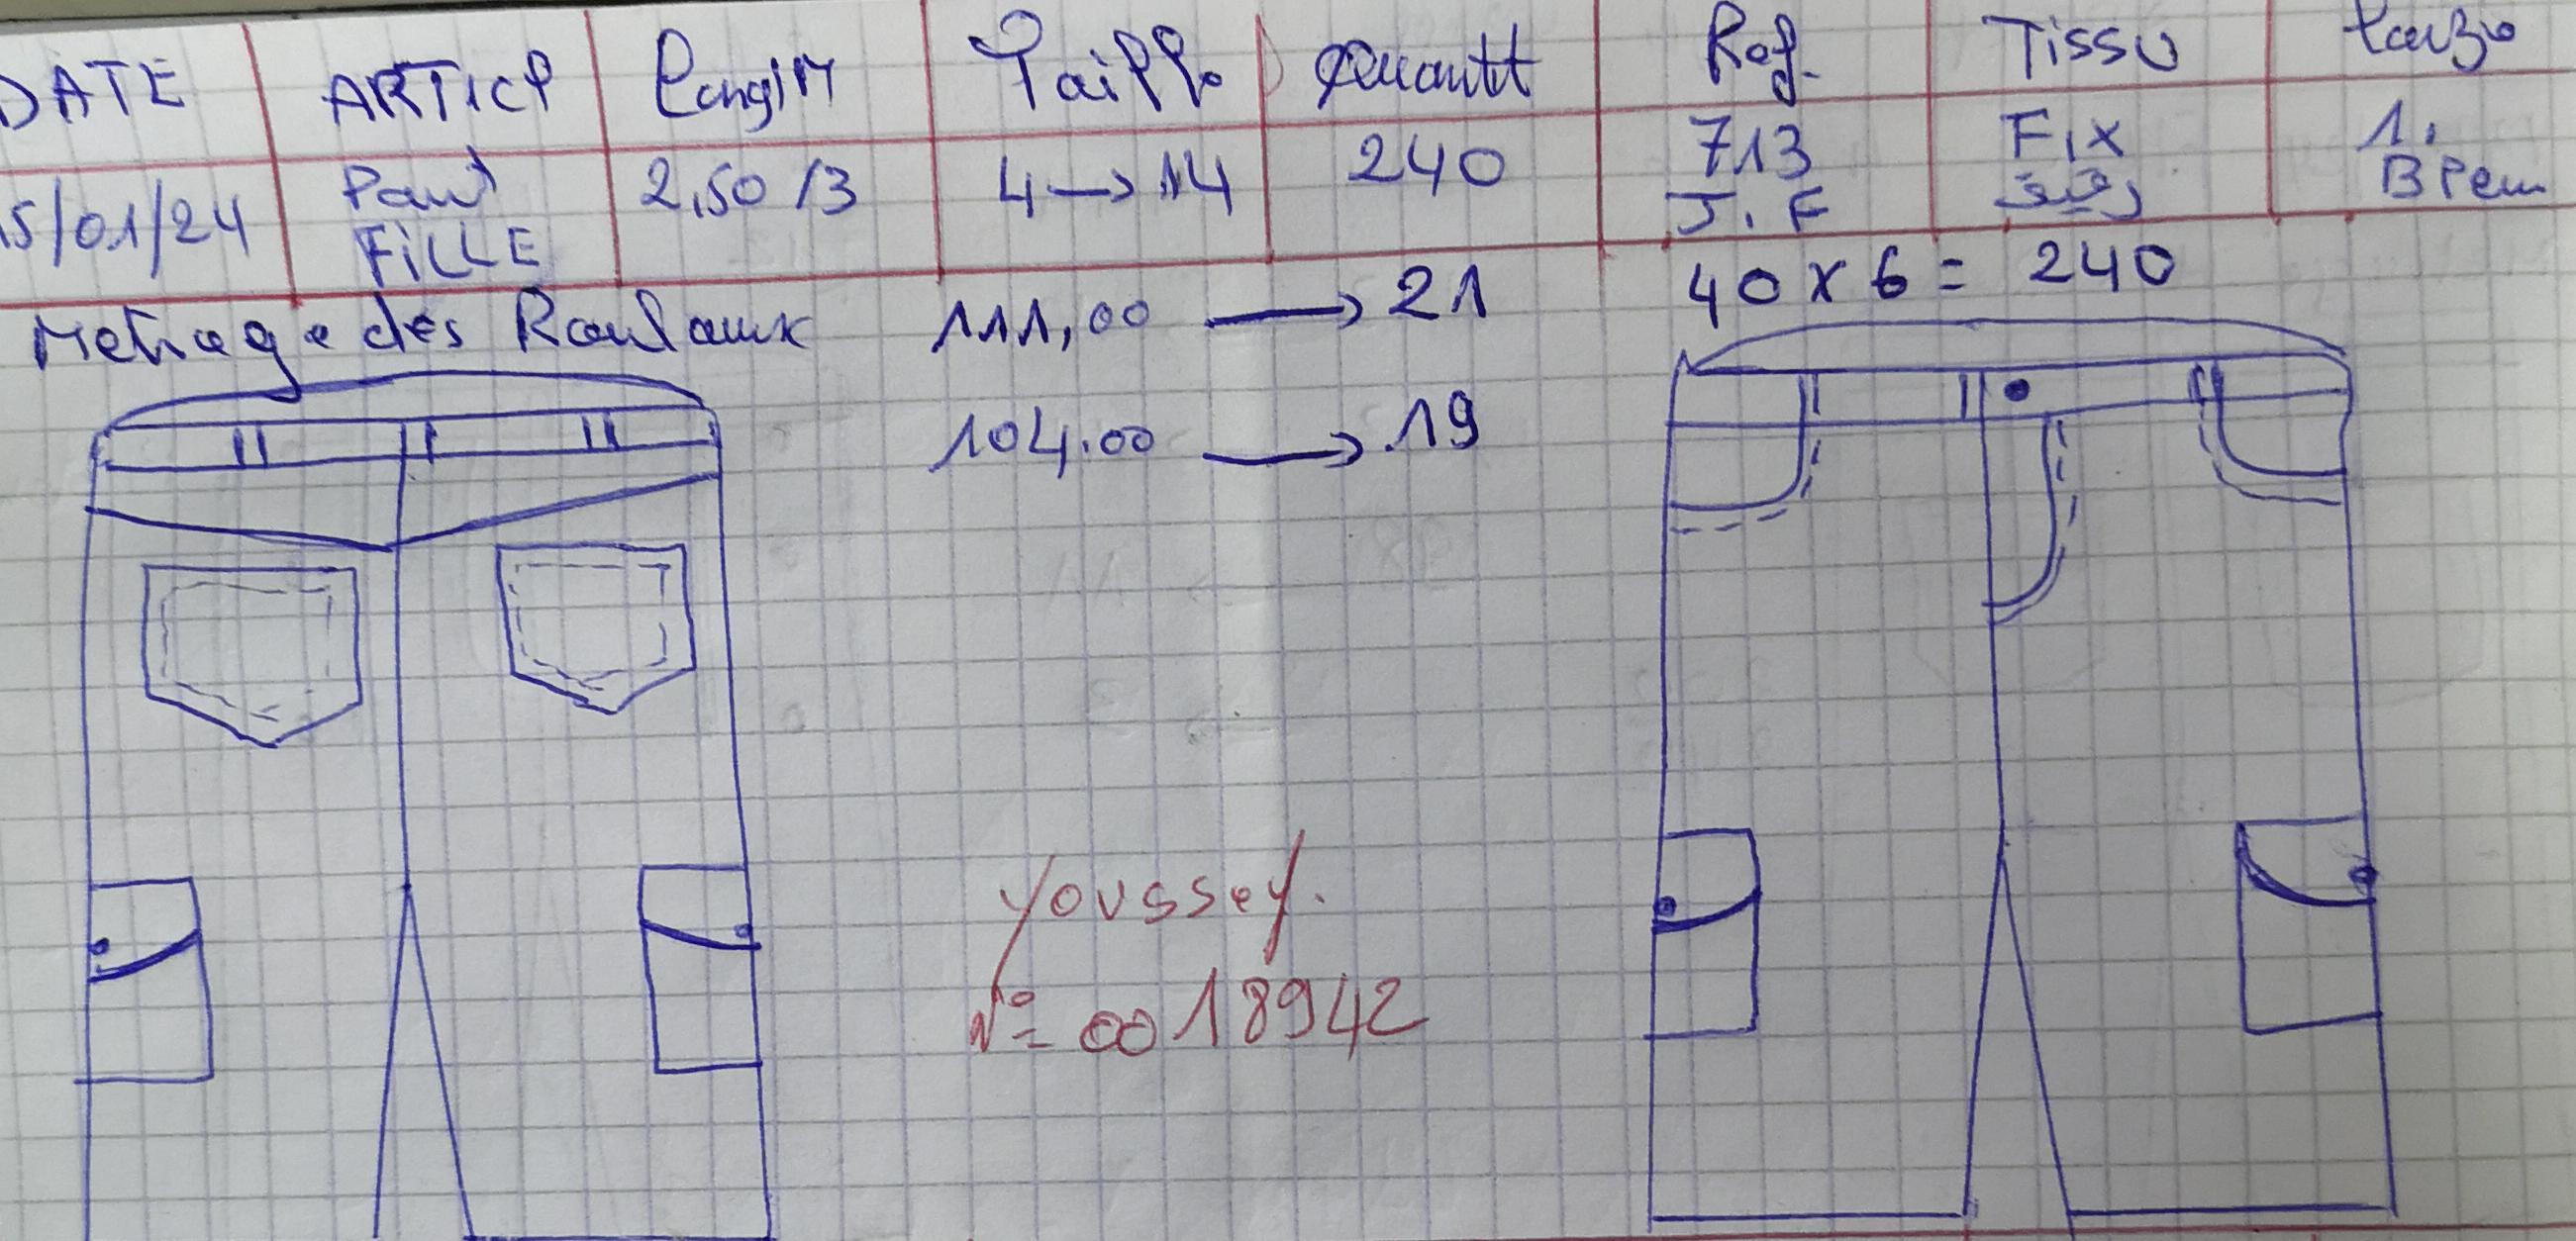 DATE ARTICL Longim Taille Quantt Ref. Tissu
15/01/24 Pant FILLE 2,50/3 4→14 240 713 J.F Fix رقيق 1. Bleu
Metrage des Roulaux 111,00 → 21 40 x 6 = 240
104.00 → 19
Youssef.
N°= 0018942